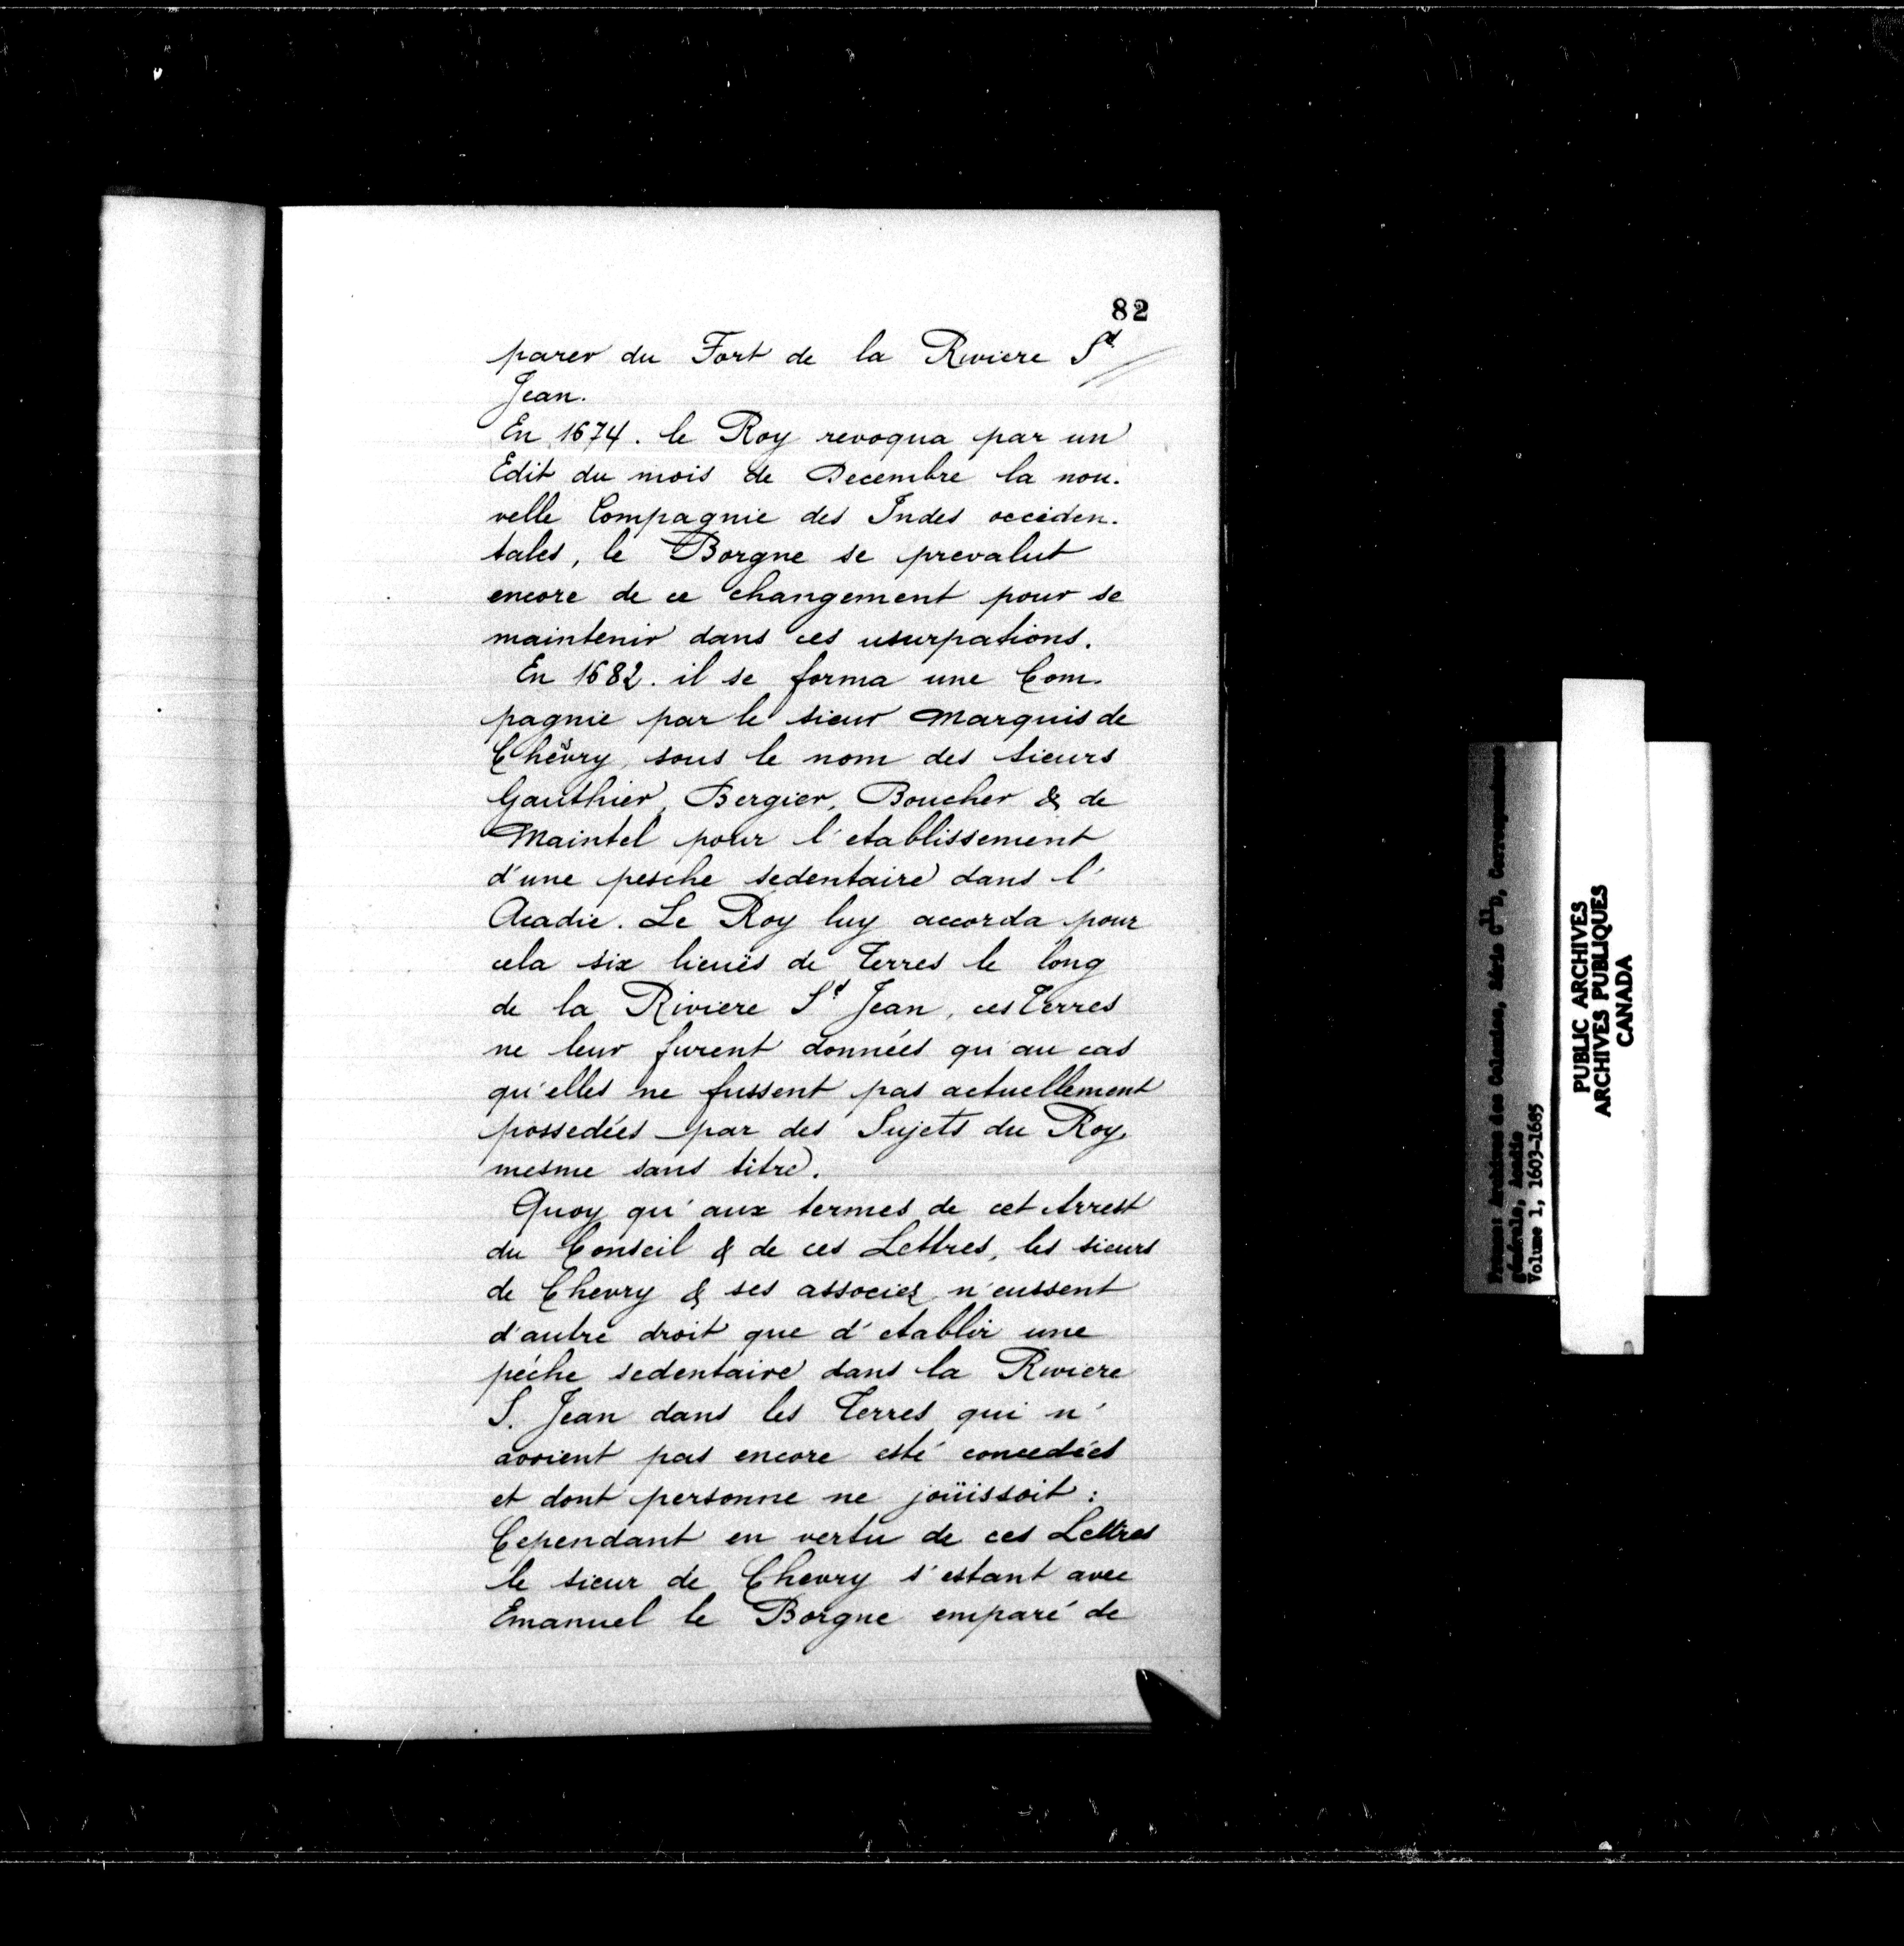 82
parer du Fort de la Riviere St
Jean.
En 1674. le Roy revoqua par un
Edit du mois de Decembre la nou-
velle Compagnie des Indes occiden-
tales, le Borgne se prevalut
encore de ce changement pour se
maintenir dans ces usurpations.
En 1682. il se forma une Com-
pagnie par le sieur Marquis de
Chevry, sous le nom des sieurs
Gauthier, Bergier, Boucher & de
Maintel pour l'etablissement
d'une pesche sedentaire dans l'
Acadie. Le Roy luy accorda pour
cela six lieuës de Terres le long
de la Riviere St Jean, ces Terres
ne leur furent données qu'au cas
qu'elles ne fussent pas actuellement
possedées par des Sujets du Roy
mesme sans titre.
Quoy qu'aux termes de cet Arrest
du Conseil & de ces Lettres, les sieurs
de Chevry & ses associez n'eussent
d'autre droit que d'etablir une
péche sedentaire dans la Riviere
S. Jean dans les Terres qui n'
avoient pas encore esté concedées
et dont personne ne joüissoit:
Cependant en vertu de ces Lettres
le sieur de Chevry s'estant avec
Emanuel le Borgne emparé de
France: Archives des Colonies, Série C11D, Correspondance
générale, Acadie
Volume 1, 1603-1685
PUBLIC ARCHIVES
ARCHIVES PUBLIQUES
CANADA